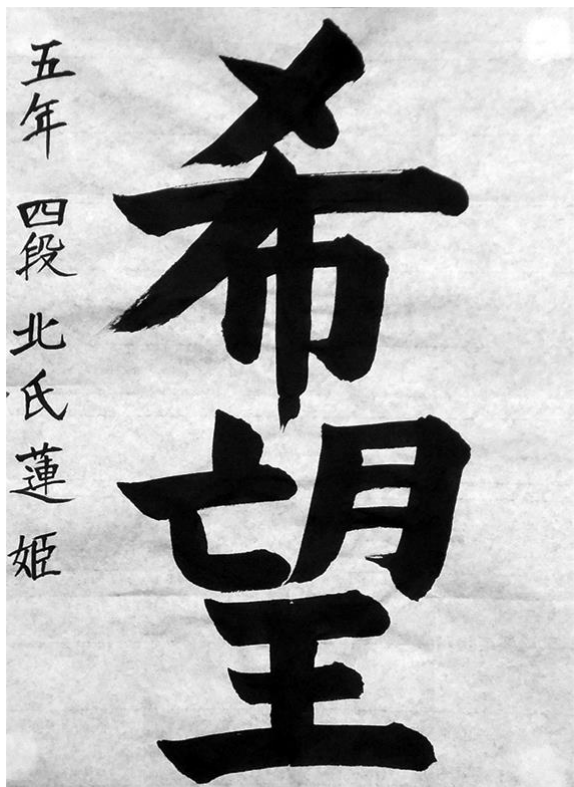 希望
五年 四段 北氏蓮姫